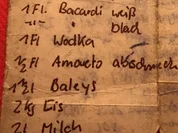 1 Fl. Bacardi weiß
" blad
1 Fl Wodka
1/2 Fl Amareto abschmeck
1 1/2 l Baleys
2 kg Eis
2 l Milch